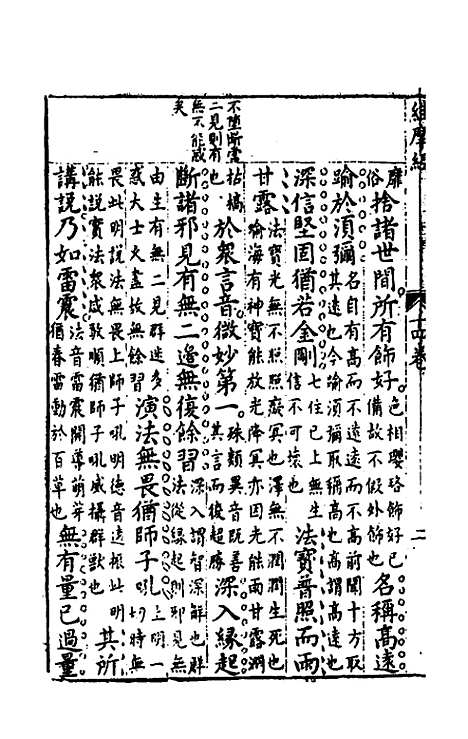 維摩經
卷
二
靡
俗捨諸世間所有飾好色相瓔珞飾好已備故不假外飾也名稱高遠
踰於須彌名自有高而不遠遠而不高前聞十方取其遠也今喻須彌取稱高也高謂高遠也
深信堅固猶若金剛七住已上無生信不可壞也法寶普照而雨
甘露法寶光無不照照癡冥也澤無不潤潤生死也喻海有神寶能放光除冥亦因光能雨甘露潤
枯槁也於眾言音微妙第一殊類異音既善其言而復超勝深入緣起
斷諸邪見有無二邊無復餘習深入謂智深解也群邪見無法從緣起則邪見無
由生有無二見群迷多惑大士久盡故無餘習演法無畏猶師子吼上明一切時無
畏此明說法無畏上師子吼明德音遠振此明能說實法眾咸敬順猶師子吼威攝群獸也其所
講說乃如雷震法音雷震開導萌芽猶春雷動於百草也無有量已過量
不墮斷常
二見則有
無不能惑
矣